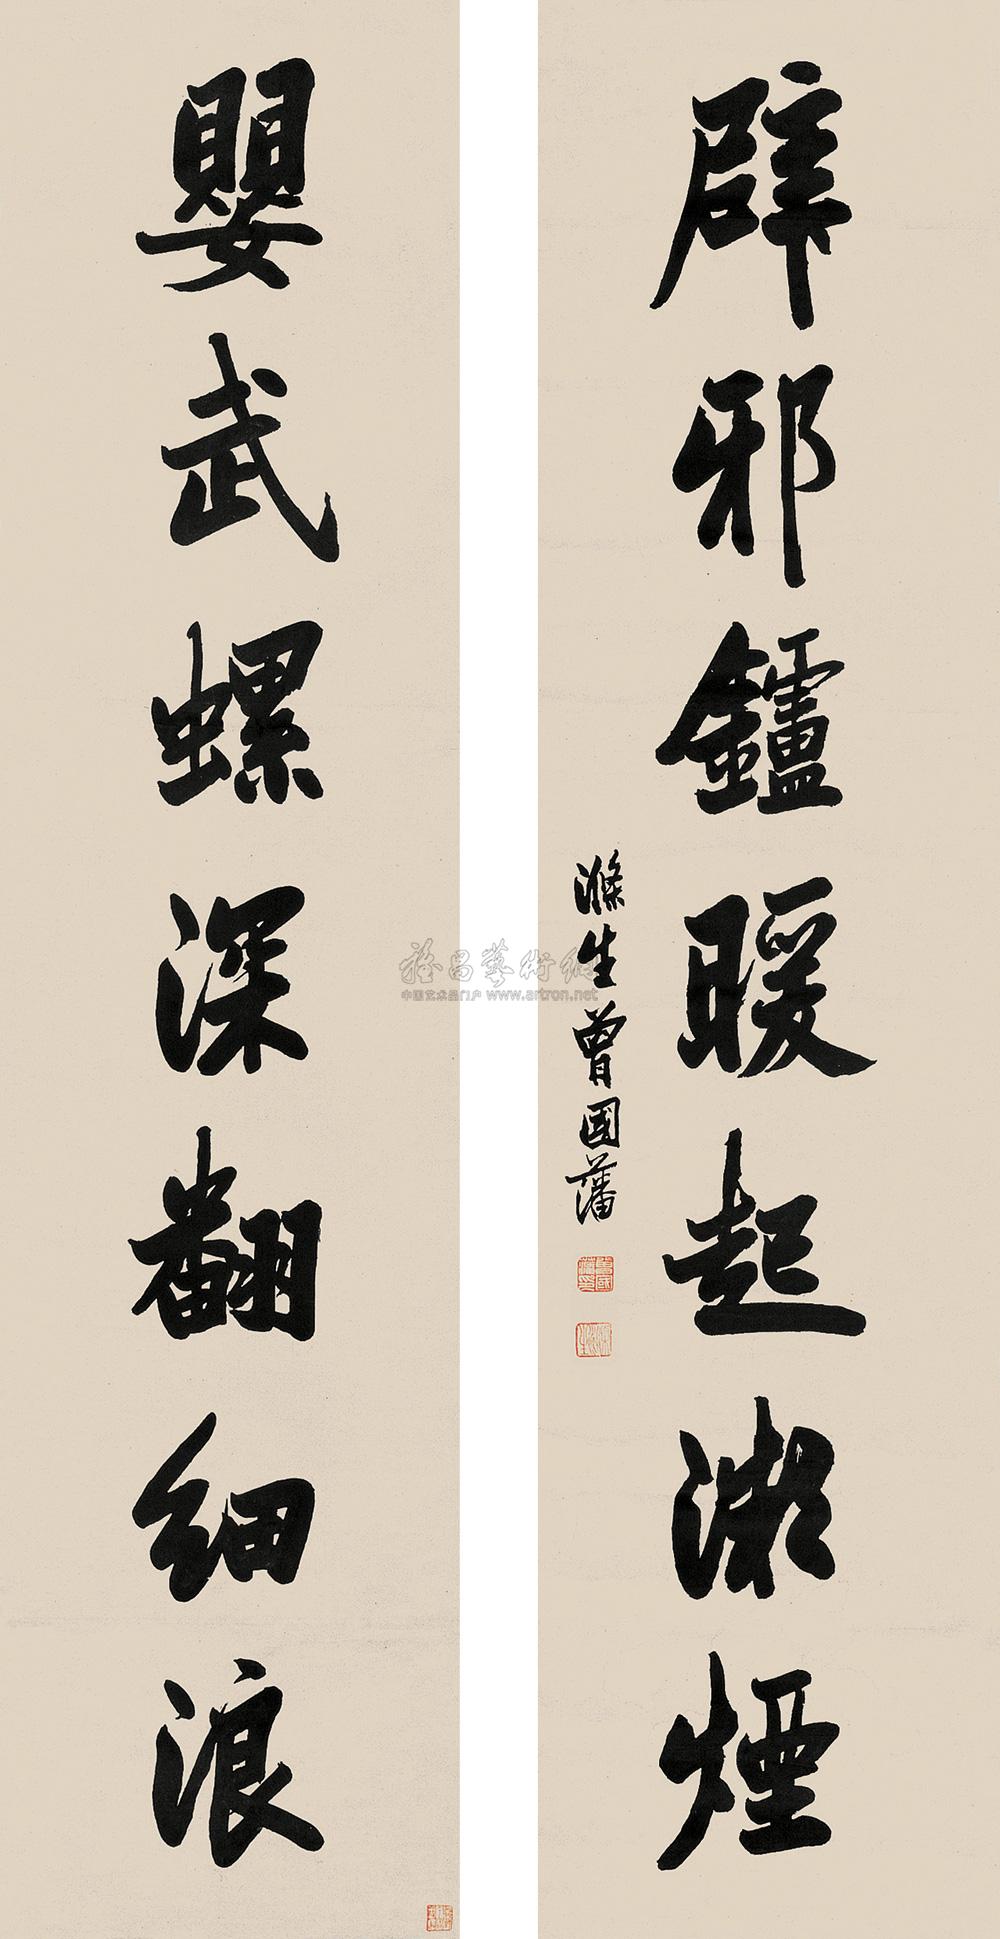 辟邪鑪暖起微煙
滌生曾国藩
嬰武螺深翻細浪
雅昌藝術網
中国艺术品门户 www.artron.net